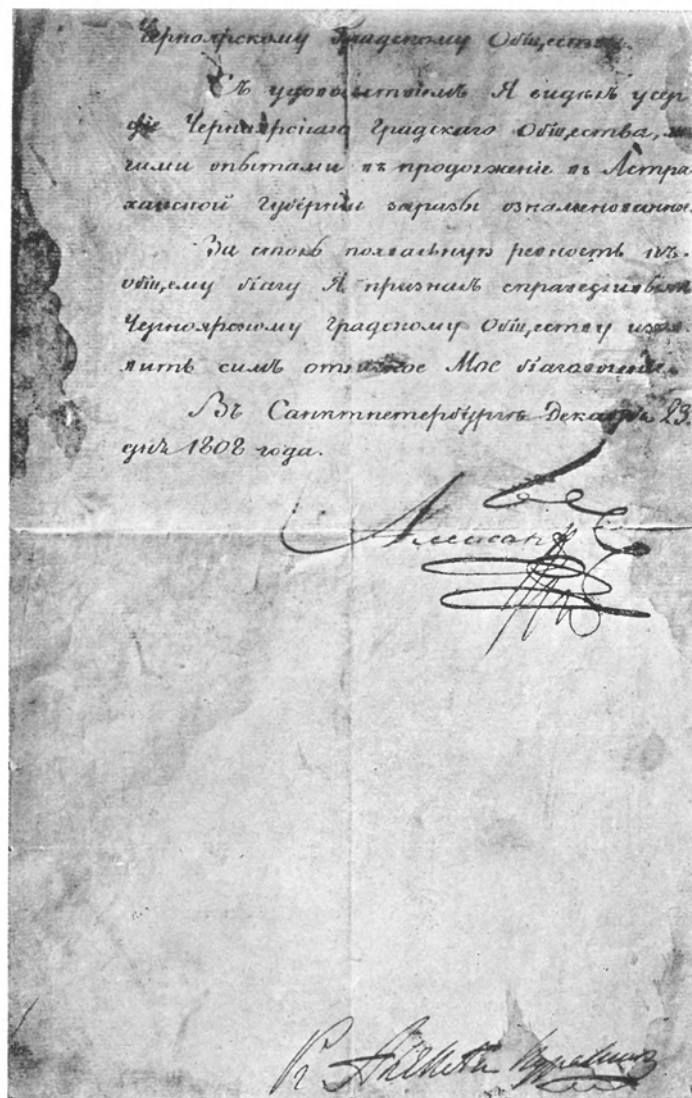 Черноярскому Градскому Обществу.
Съ удовольствіемъ Я видѣлъ усер-
діе Черноярскаго Градскаго Общества,
гими опытами въ продолженіе въ Астра-
ханской Губерніи заразы ознаменованное.
За столь похвальную ревность къ
общему благу Я призналъ справедливымъ
Черноярскому Градскому Обществу изъя-
вить симъ отличное Мое благоволеніе.
Въ Санктпетербургѣ Декабря 23.
дня 1808 года.
Александръ
Куракинъ